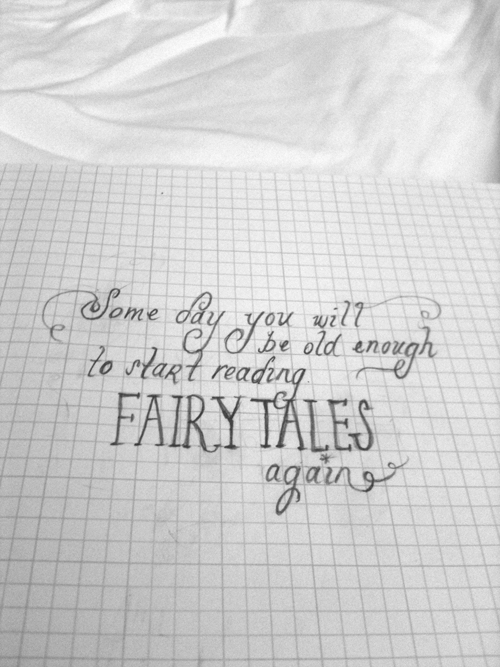 Some day you will
be old enough
to start reading
FAIRY TALES
again